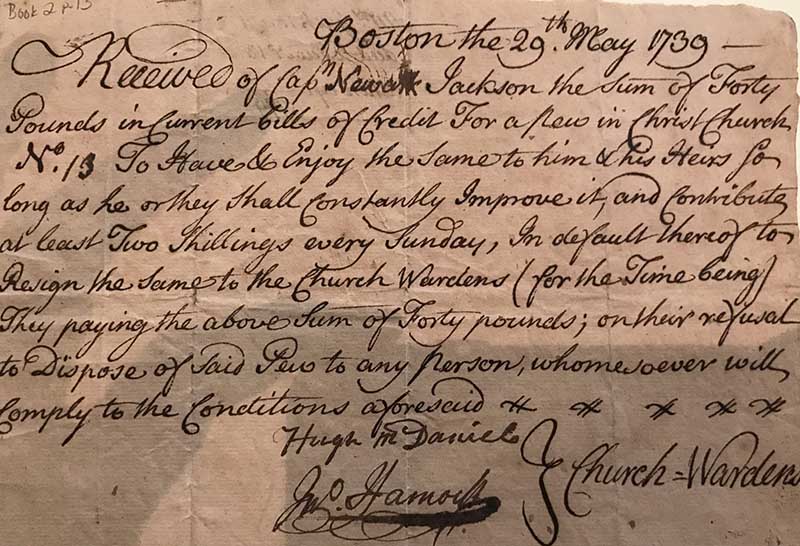 Book 2 p. 13
Boston the 29th. May 1739 —
Received of Capn Newark Jackson the Sum of Forty
Pounds in Current Bills of Credit For a Pew in Christ Church
No. 13 To Have & Enjoy the Same to him & his Heirs So
long as he or they Shall Constantly Improve it, and Contribute
at least Two Shillings every Sunday, In default thereof to
Resign the Same to the Church Wardens (for the Time being)
They paying the above Sum of Forty pounds; on their refusal
to Dispose of Said Pew to any Person, whomesoever will
Comply to the Conditions aforesaid
Hugh McDaniel
Jno. Hamock
Church=Wardens